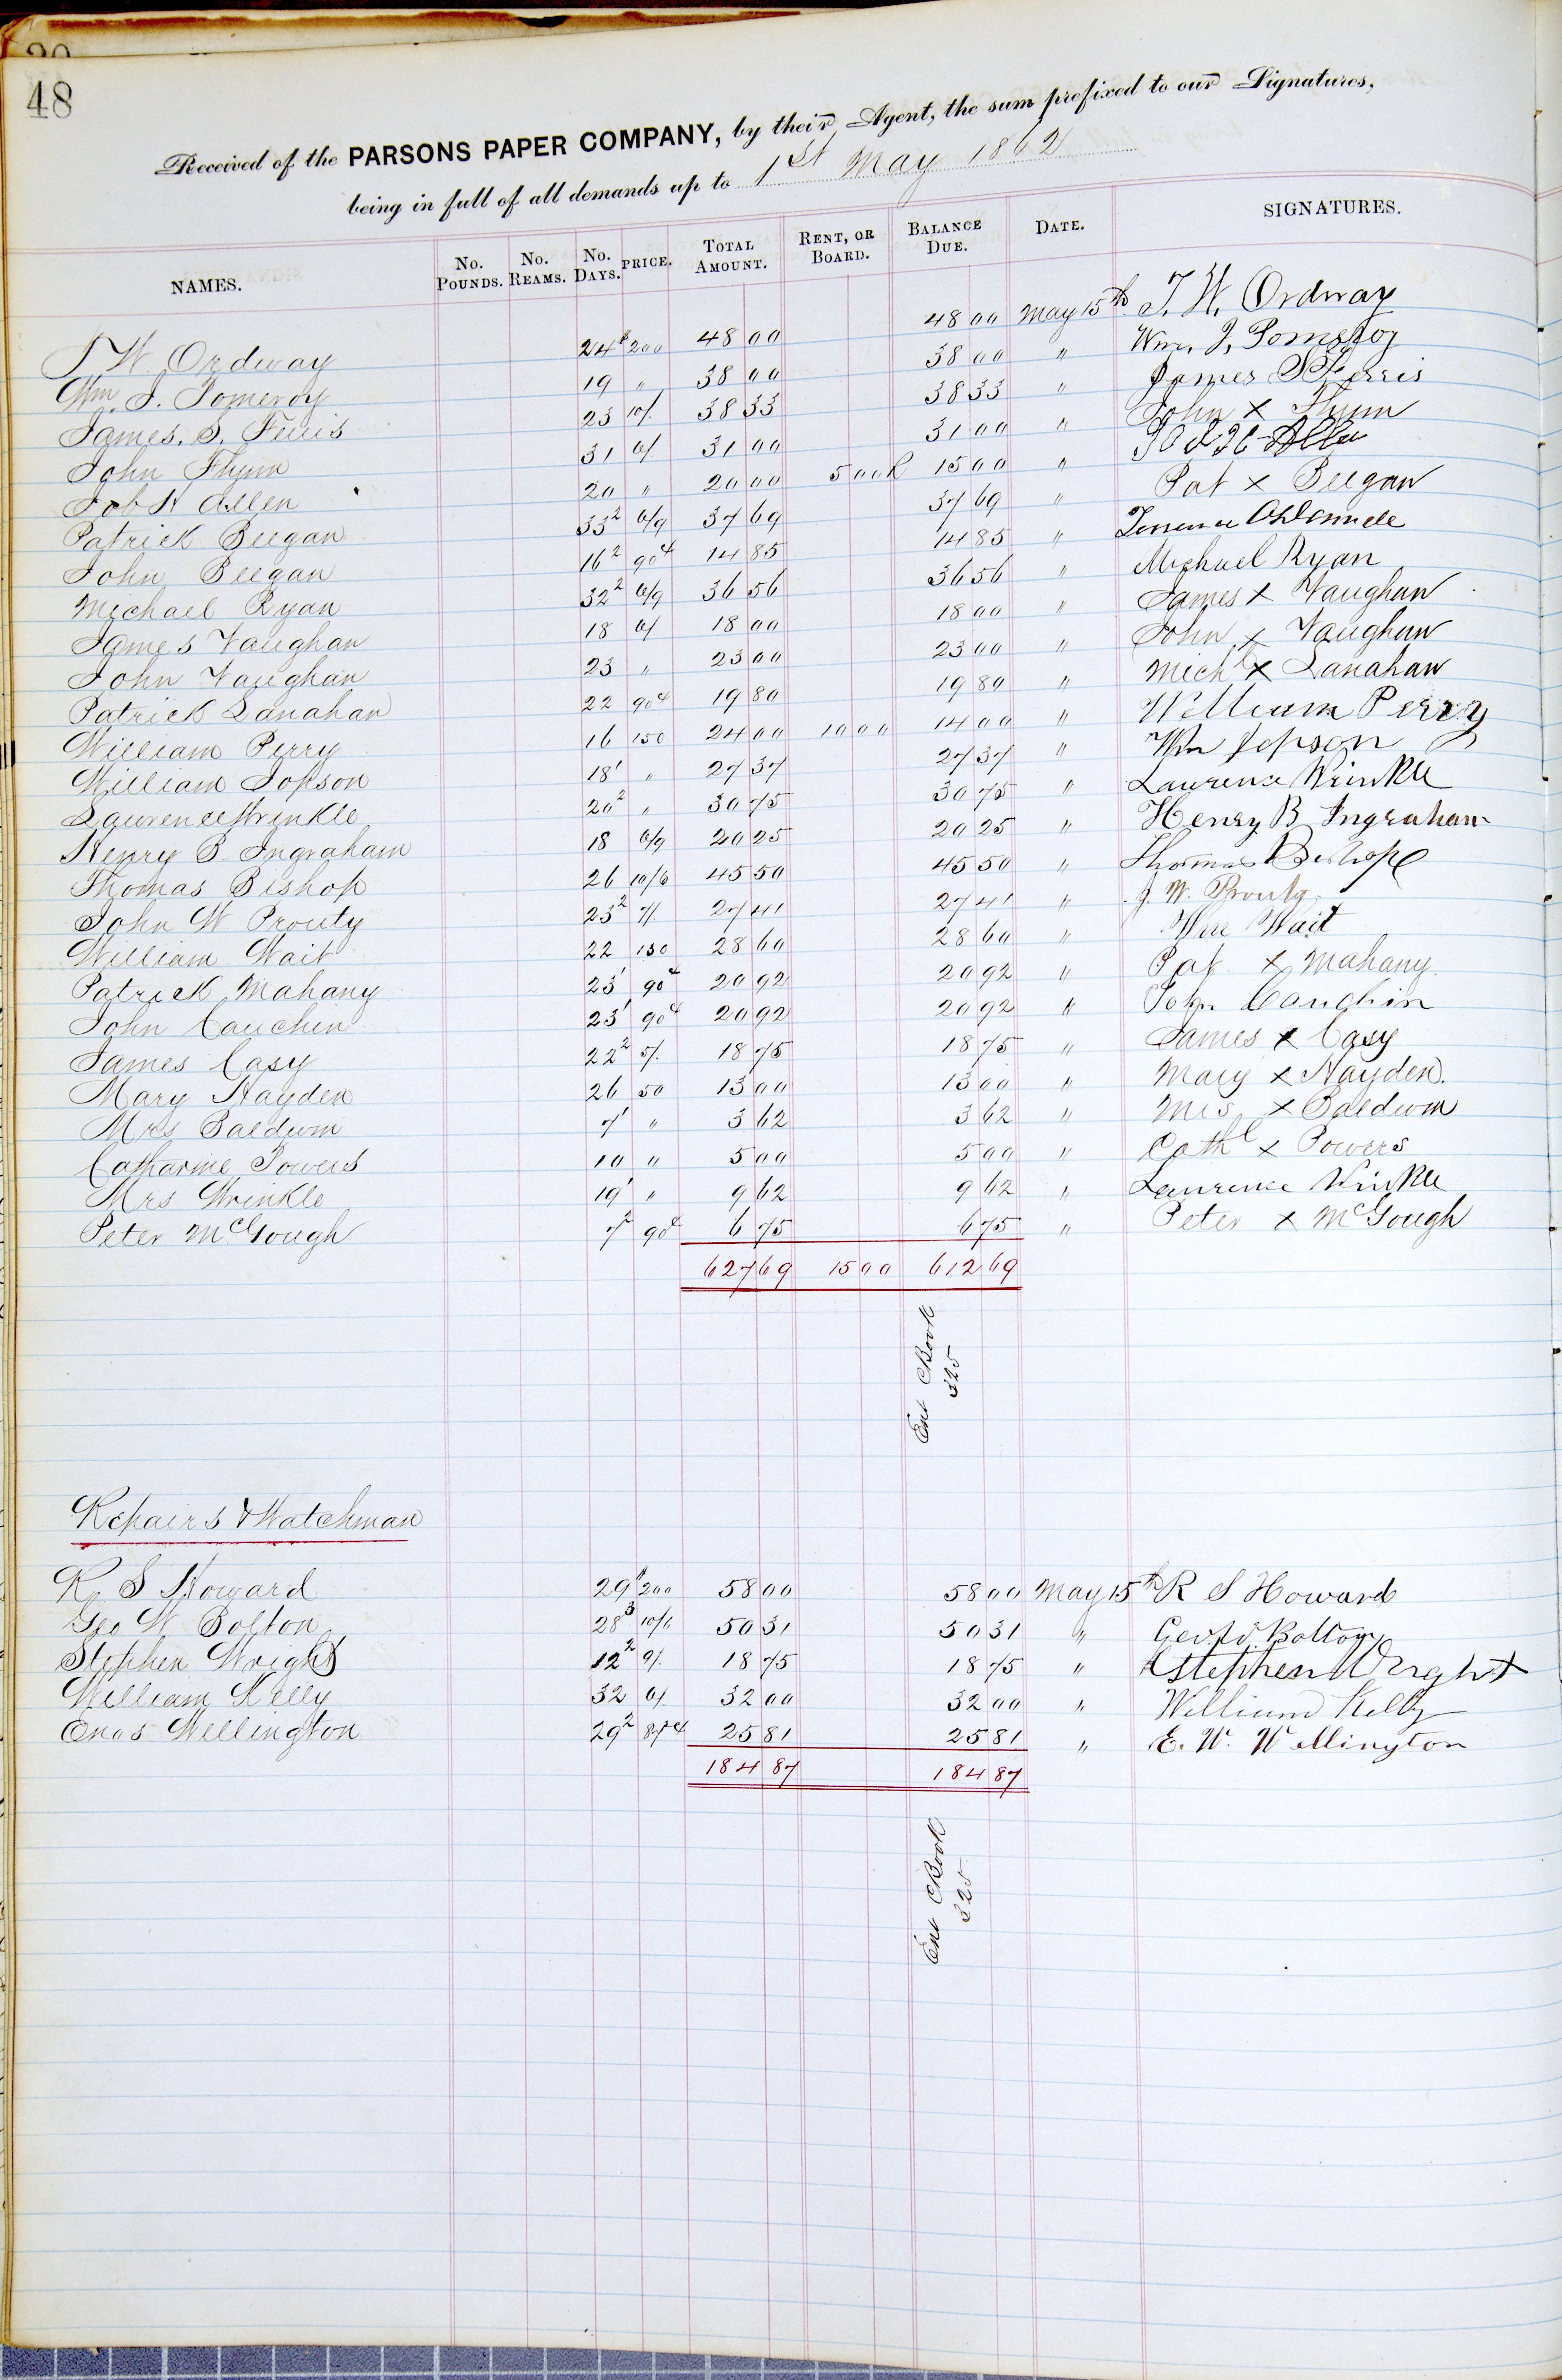 48
Received of the PARSONS PAPER COMPANY, by their Agent, the sum prefixed to our Signatures,
being in full of all demands up to 1st May 1862
NAMES. No. Pounds. No. Reams. No. Days. Price. Total Amount. Rent, or Board. Balance Due. Date. SIGNATURES.
T W. Ordway 24 $200 48 00 48 00 May 15th T. W. Ordway
Wm. J. Pomeroy 19 " 38 00 38 00 " Wm. J. Pomeroy
James. S. Ferris 23 10/. 38 33 38 33 " James S Ferris
John Flynn 31 6/ 31 00 31 00 " John x Flynn
Job N Allen 20 " 20 00 5 00 R 15 00 " Allen
Patrick Beegan 33² 6/9 37 69 37 69 " Pat x Beegan
John Beegan 16² 90¢ 14 85 14 85 "
Michael Ryan 32² 6/9 36 56 36 56 " Michael Ryan
James Vaughan 18 6/ 18 00 18 00 " James x Vaughan
John Vaughan 23 " 23 00 23 00 " John x Vaughan
Patrick Lanahan 22 90¢ 19 80 19 80 " Michl x Lanahan
William Perry 16 150 24 00 10 00 14 00 " William Perry
William Jopson 18¹ " 27 37 27 37 " Wm Jopson
Laurence Wrinkle 20² " 30 75 30 75 " Laurence Wrinkle
Henry B. Ingraham 18 6/9 20 25 20 25 " Henry B Ingraham
Thomas Bishop 26 10/6 45 50 45 50 " Thomas Bishop
John W Prouty 23² 7/. 27 41 27 41 " J. W. Prouty
William Wait 22 130 28 60 28 60 " Wm Wait
Patrick Mahany 23¹ 90¢ 20 92 20 92 " Pat x Mahany
John Cauchin 23¹ 90¢ 20 92 20 92 " John Caughin
James Casy 22² 5/. 18 75 18 75 " James x Casy
Mary Hayden 26 50 13 00 13 00 " Mary x Hayden.
Mrs Baldwin 7¹ " 3 62 3 62 " Mrs x Baldwin
Catharine Powers 10 " 5 00 5 00 " Cath x Powers
Mrs Wrinkle 19¹ " 9 62 9 62 " Laurence Wrinkle
Peter McGough 7² 90¢ 6 75 6 75 " Peter x McGough
627 69 15 00 612 69
Ent CBook
325
Repairs & Watchman
R. S Howard 29 $200 58 00 58 00 May 15th R S Howard
Geo W. Bolton 28³ 10/6 50 31 50 31 " Geo W. Bolton
Stephen Wright 12² 9/. 18 75 18 75 " Stephen Wright
William Kelly 32 6/. 32 00 32 00 " William Kelly
Enos Wellington 29² 87¢ 25 81 25 81 " E. W. Wellington
184 87 184 87
Ent CBook
325